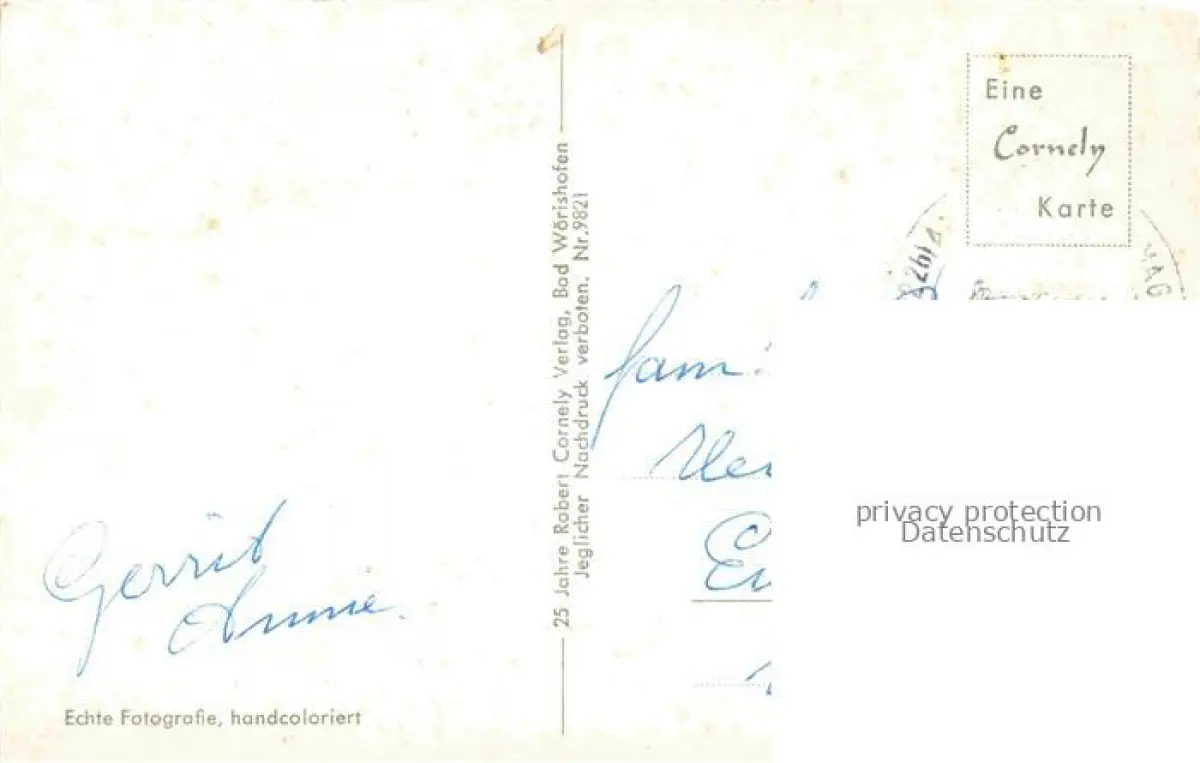 Eine
Cornely
Karte
25 Jahre Robert Cornely Verlag, Bad Wörishofen
Jeglicher Nachdruck verboten. Nr. 9821
Gerrit
Annie.
Echte Fotografie, handcoloriert
Fam.
privacy protection
Datenschutz